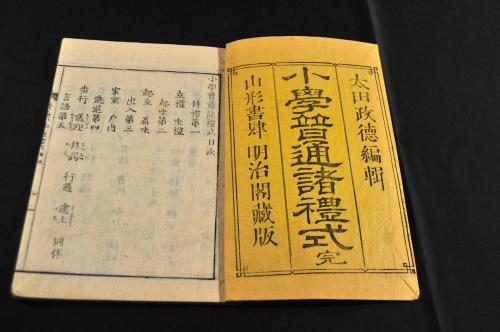 太田政德編輯
小學普通諸禮式 完
山形書肆 明治閣藏版
小學普通諸禮式目次
拜禮第一
立禮 坐禮
起坐第二
起立 着坐
出入第三
家室 戸内
進退第四
步行 送迎
行遇 途上 同伴
言語第五